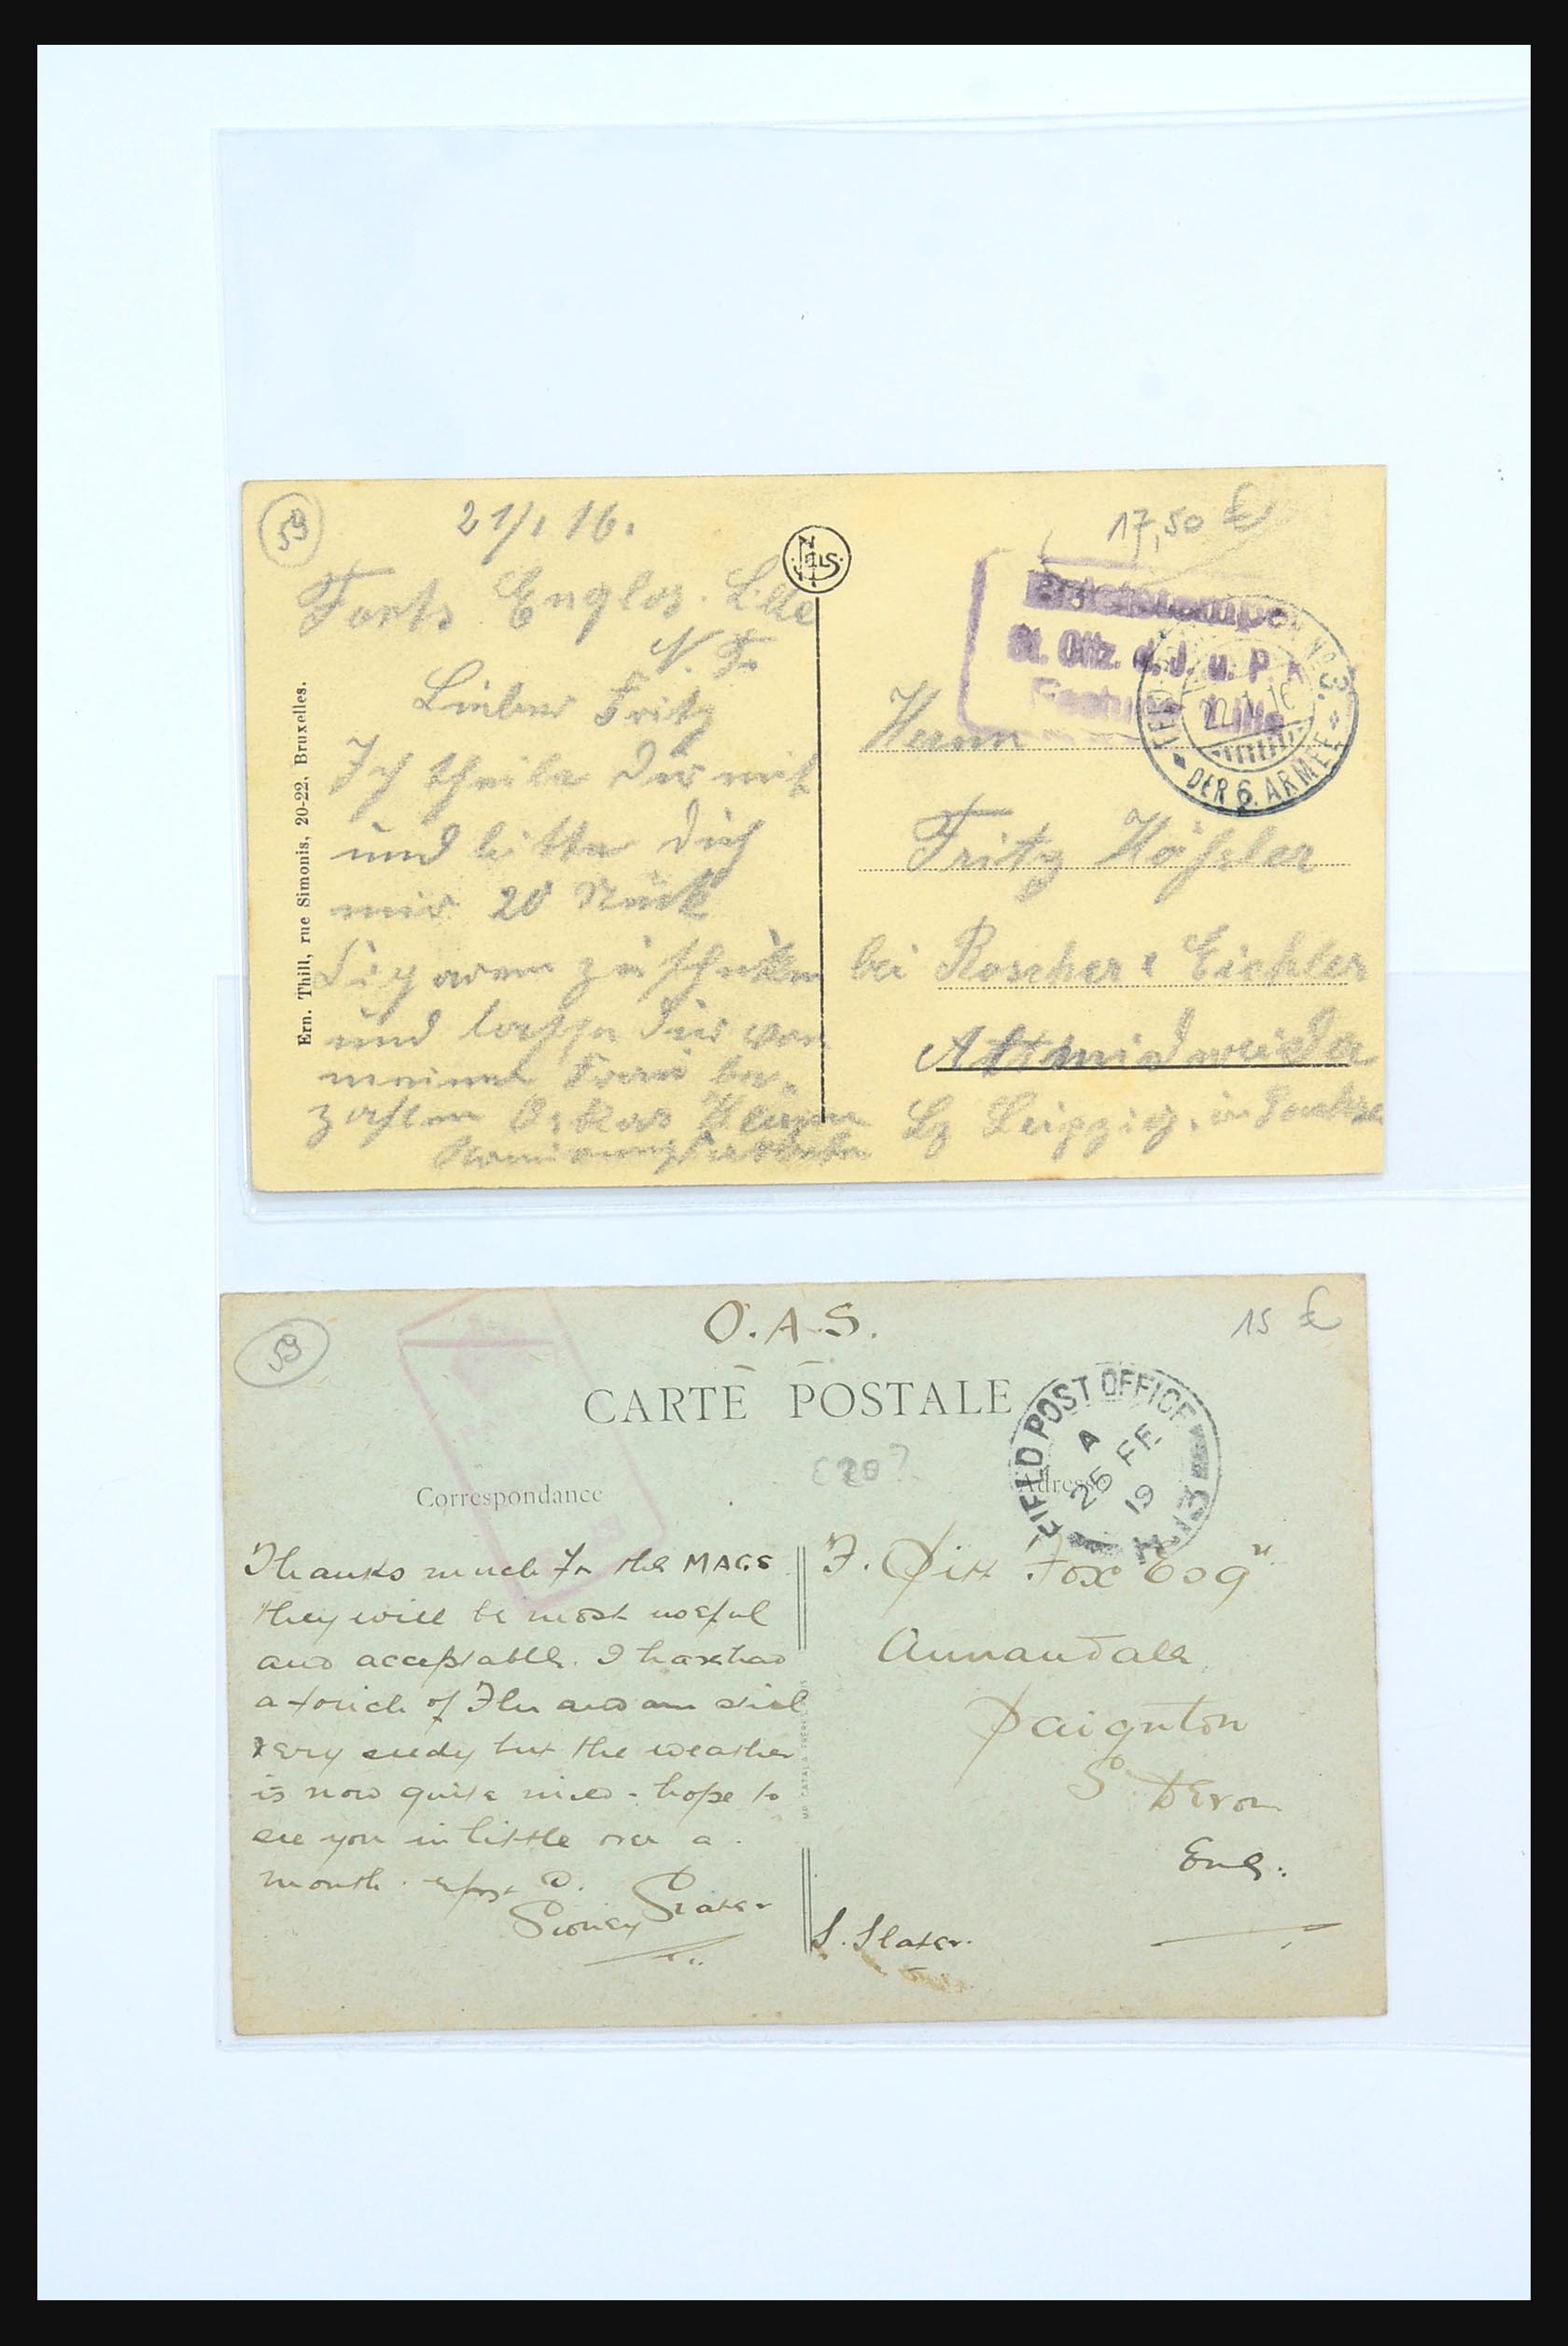 59
21/1 16.
17,50 £
Forts Englos. Lille
N. F.
Lieber Fritz
Ich theile Dir mit
und bitte Dich
mir 20 Stück
Zigaren zu schicken
und lasse Dir von
meiner Frau be-
zahlen Oskar
Nels
Ern. Thill, rue Simonis, 20-22, Bruxelles.
Briefstempel
St. Offz. d. J. u. P.
Lille
No 3.
22.1.16
DER 6. ARMEE
Herrn
Fritz Hößler
bei Roscher & Eichler
Altmidweida
Bz Leipzig, in Sachsen
59
O.A.S.
15 £
CARTE POSTALE
£20?
Correspondance
Adresse
FIELD POST OFFICE
A
25 FE
19
H
Thanks much for the MAGS
they will be most useful
and acceptable. I have had
a touch of Flu and am still
very seedy but the weather
is now quite mild - hope to
see you in little over a
month.
Sidney Slater
F. Dix Fox Esq
Annandale
Paignton
S. Devon
Eng.
S. Slater.